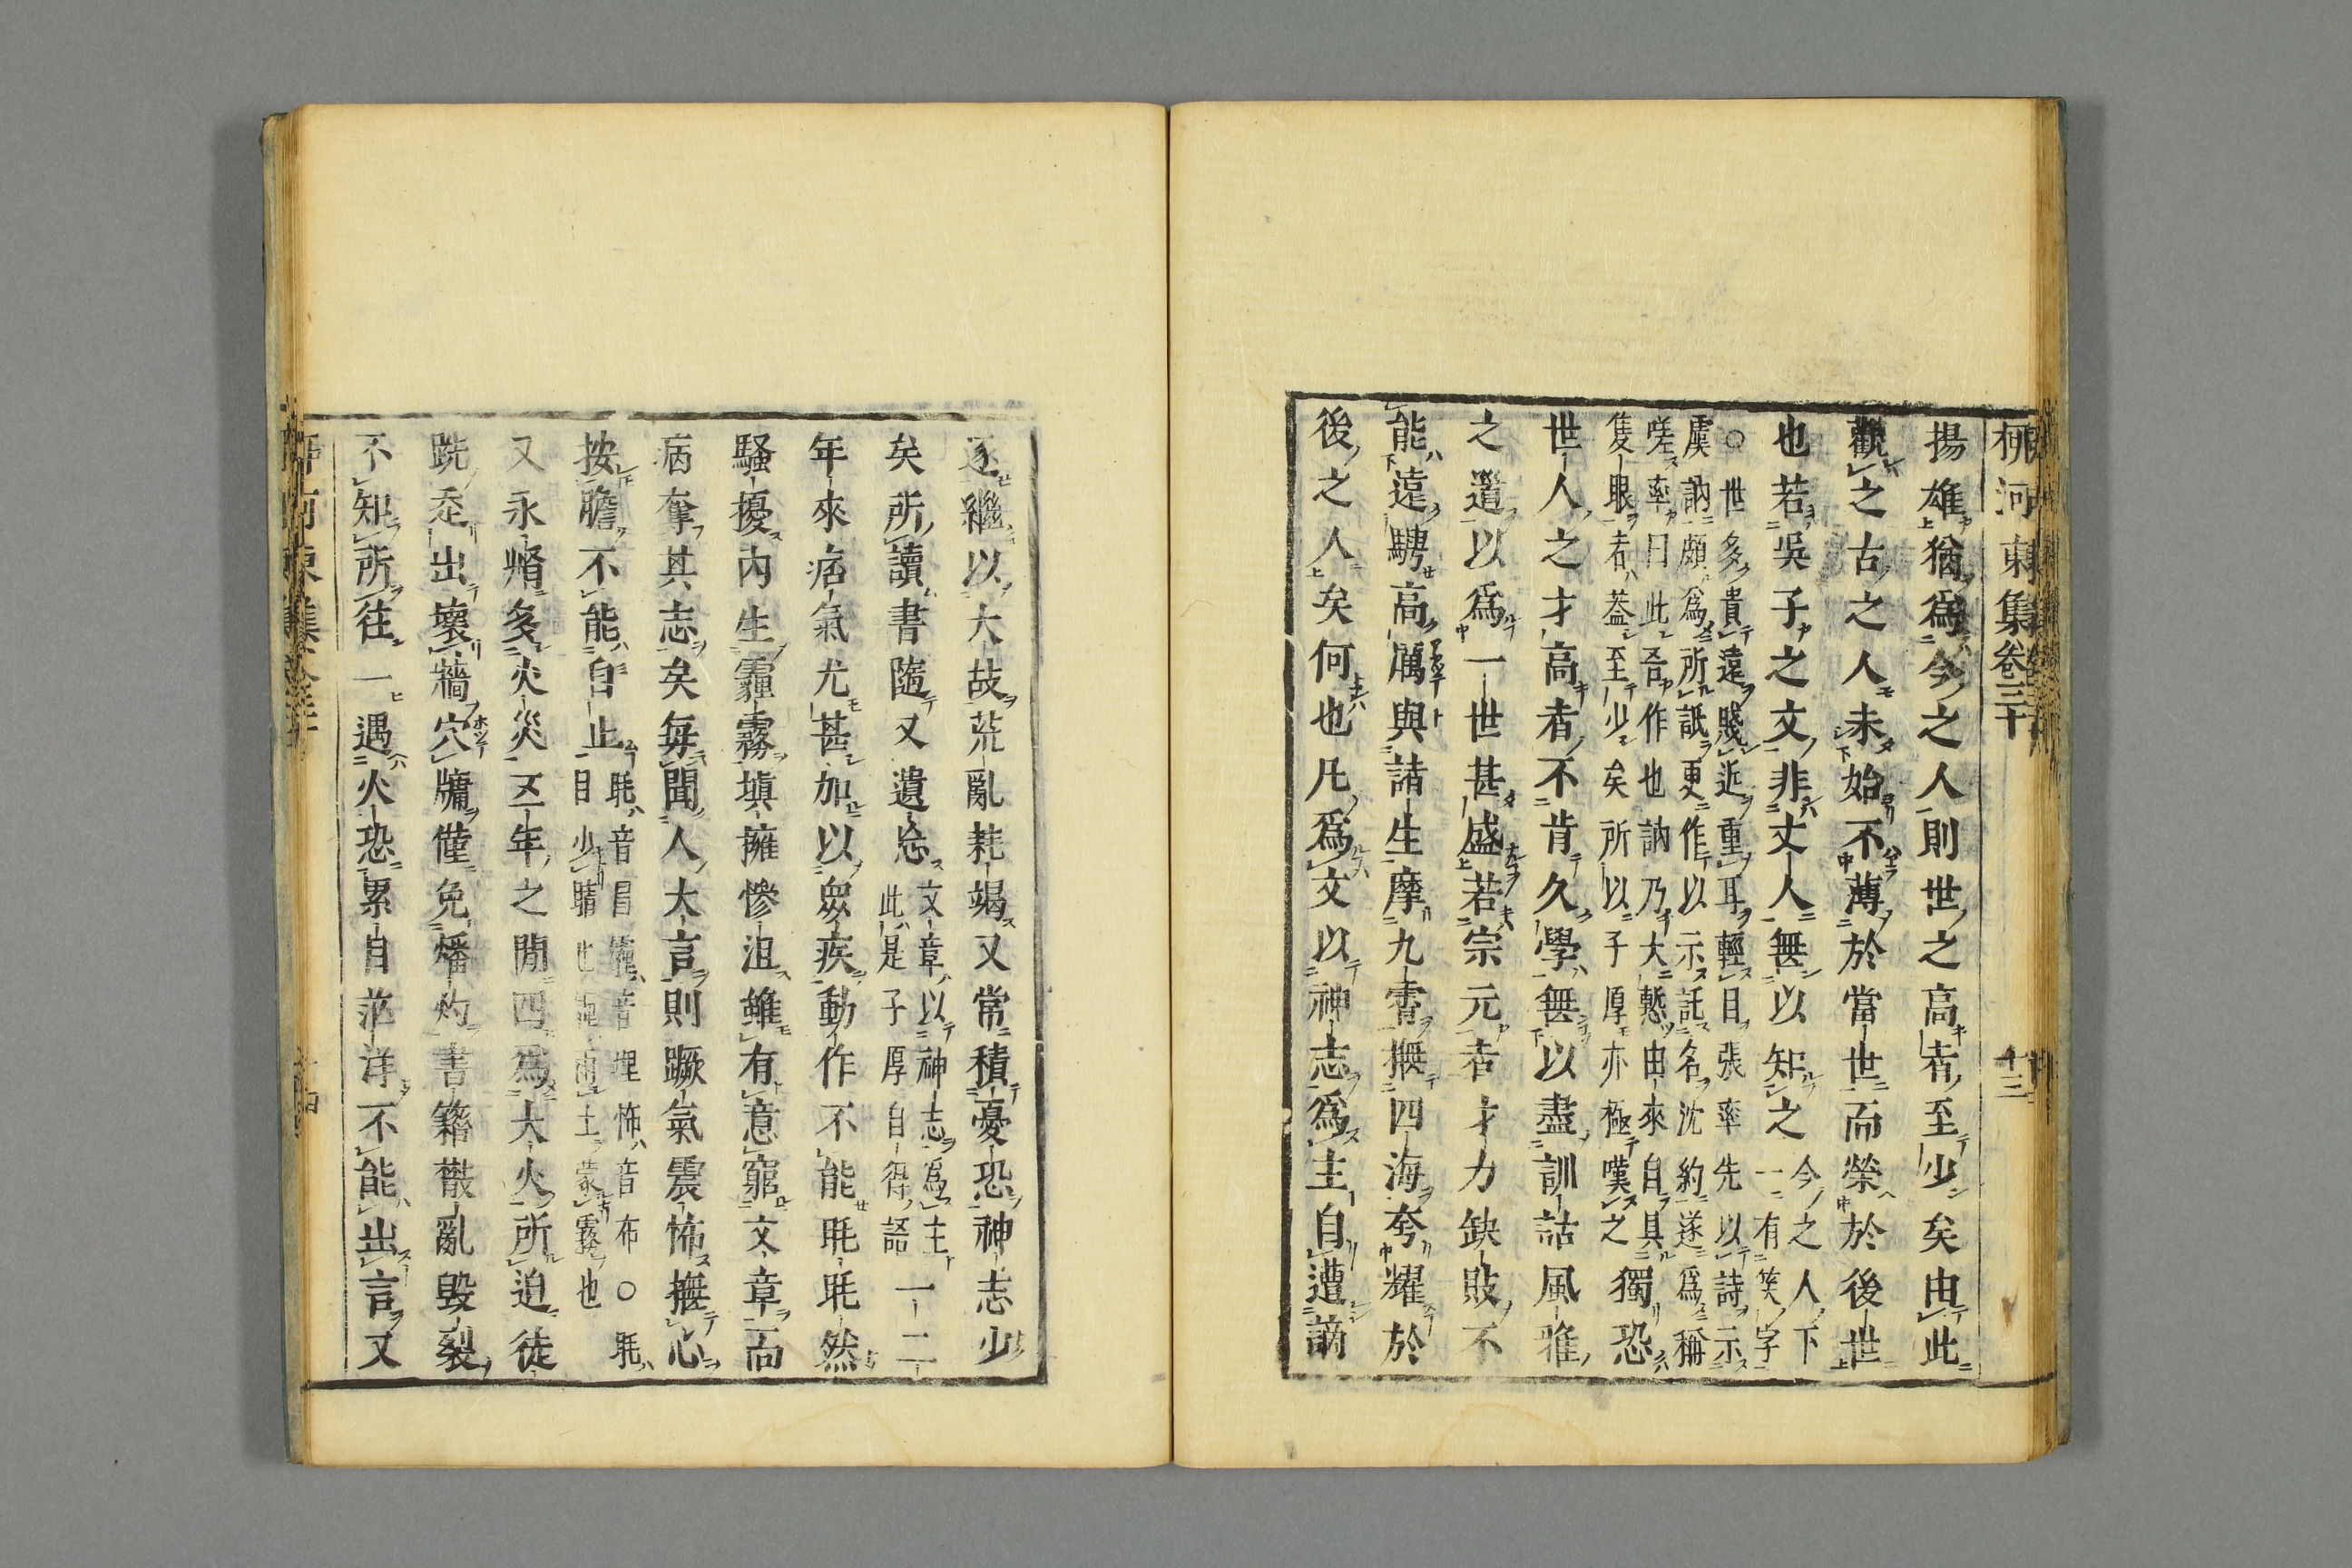 柳河東集卷三十 十三
揚雄猶爲今之人則世之高者至少矣由此
觀之古之人未始不薄於當世而榮於後世
也若吳子之文非丈人無以知之今之人下
一有笑字
○世多貴遠賤近重耳輕目張率先以詩示
虞訥頗爲所詆更作以示託名沈約遂爲稱
嗟率曰此吾作也訥乃大慙由來自具
隻眼者蓋至少矣所以子厚亦極嘆之獨恐
世人之才高者不肯久學無以盡訓詁風雅
之道以爲一世甚盛若宗元者才力缺敗不
能遠騁高厲與諸生摩九霄撫四海夸耀於
後之人矣何也凡爲文以神志爲主自遭謫
逐繼以大故荒亂耗竭又常積憂恐神志少
矣所讀書隨又遺忘文章以神志爲主一二
此是子厚自得語
年來痞氣尤甚加以衆疾動作不能眊眊然
騷擾內生霾霧塡擁慘沮雖有意窮文章而
病奪其志矣每聞人大言則蹶氣震怖撫心
按膽不能自止眊音冒霾音埋怖音布○眊
目少睛也霾雨土蒙霧也
又永州多火災五年之間四爲大火所迫徒
跣走出壞牆穴牖僅免燔灼書籍散亂毀裂
不知所往一遇火恐累日茫洋不能出言又